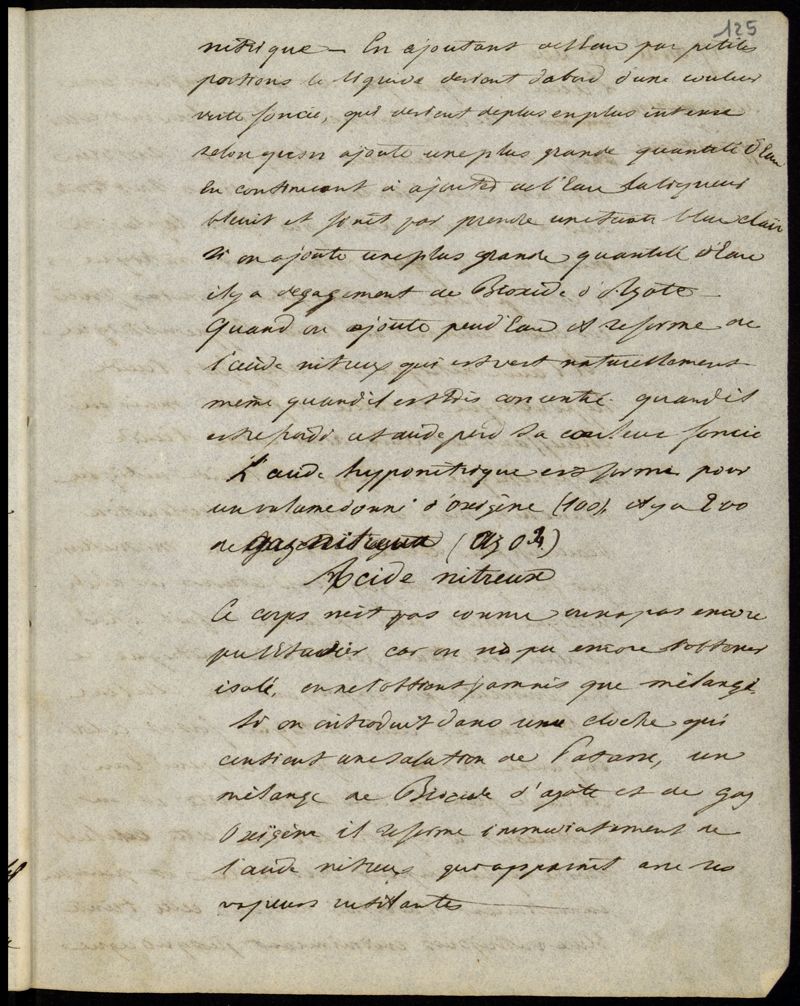 125
nitrique — En ajoutant de l'eau par petites
portions le liquide devient d'abord d'une couleur
verte foncée, qui devient de plus en plus intense
selon qu'on ajoute une plus grande quantité d'Eau
En continuant à ajouter de l'Eau la liqueur
bleuit et finit par prendre une teinte bleu clair
si on ajoute une plus grande quantité d'Eau
il y a dégagement de Bioxide d'Azote —
Quand on ajoute peu d'Eau il se forme de
l'acide nitreux qui est vert naturellement
même quand il est très concentré. quand il
est refroidi cet acide perd sa couleur foncée
L'acide hyponitrique est formé pour
un volume donné d'oxigène (100), il y a 200
de (Az O4)
Acide nitreux
Ce corps n'est pas connu on n'a pas encore
pu l'Etudier car on n'a pu encore l'obtenir
isolé, on ne l'obtient jamais que mélangé
Si on introduit dans une cloche qui
contient une solution de Potasse, un
mélange de Bioxide d'azote et de gaz
Oxigène il se forme immédiatement de
l'acide nitreux qui apparait avec ses
vapeurs irritantes —